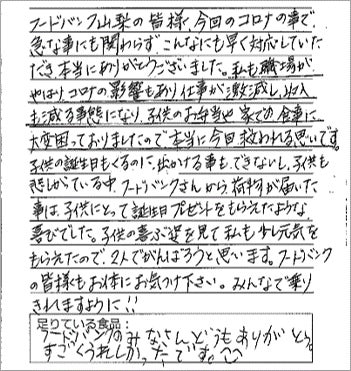 フードバンク山梨の皆様、今回のコロナの事で、
急な事にも関わらず、こんなにも早く対応していた
だき本当にありがとうございました。私も職場が
やはりコロナの影響もあり仕事が激減し、収入
も減る事態になり、子供のお弁当や家での食事に
大変困っておりましたので本当に今回救われる思いです。
子供の誕生日もくるのに、出かける事もできないし、子供も
悲しがっている中フードバンクさんから荷物が届いた
事は、子供にとって誕生日プレゼントをもらえたような
喜びでした。子供の喜ぶ姿を見て私も少し元気を
もらえたので、2人でがんばろうと思います。フードバンク
の皆様もお体にお気をつけ下さい。みんなで乗り
きれますように!!
足りている食品:
フードバンクのみなさんどうもありがとう。
すごくうれしかったです。